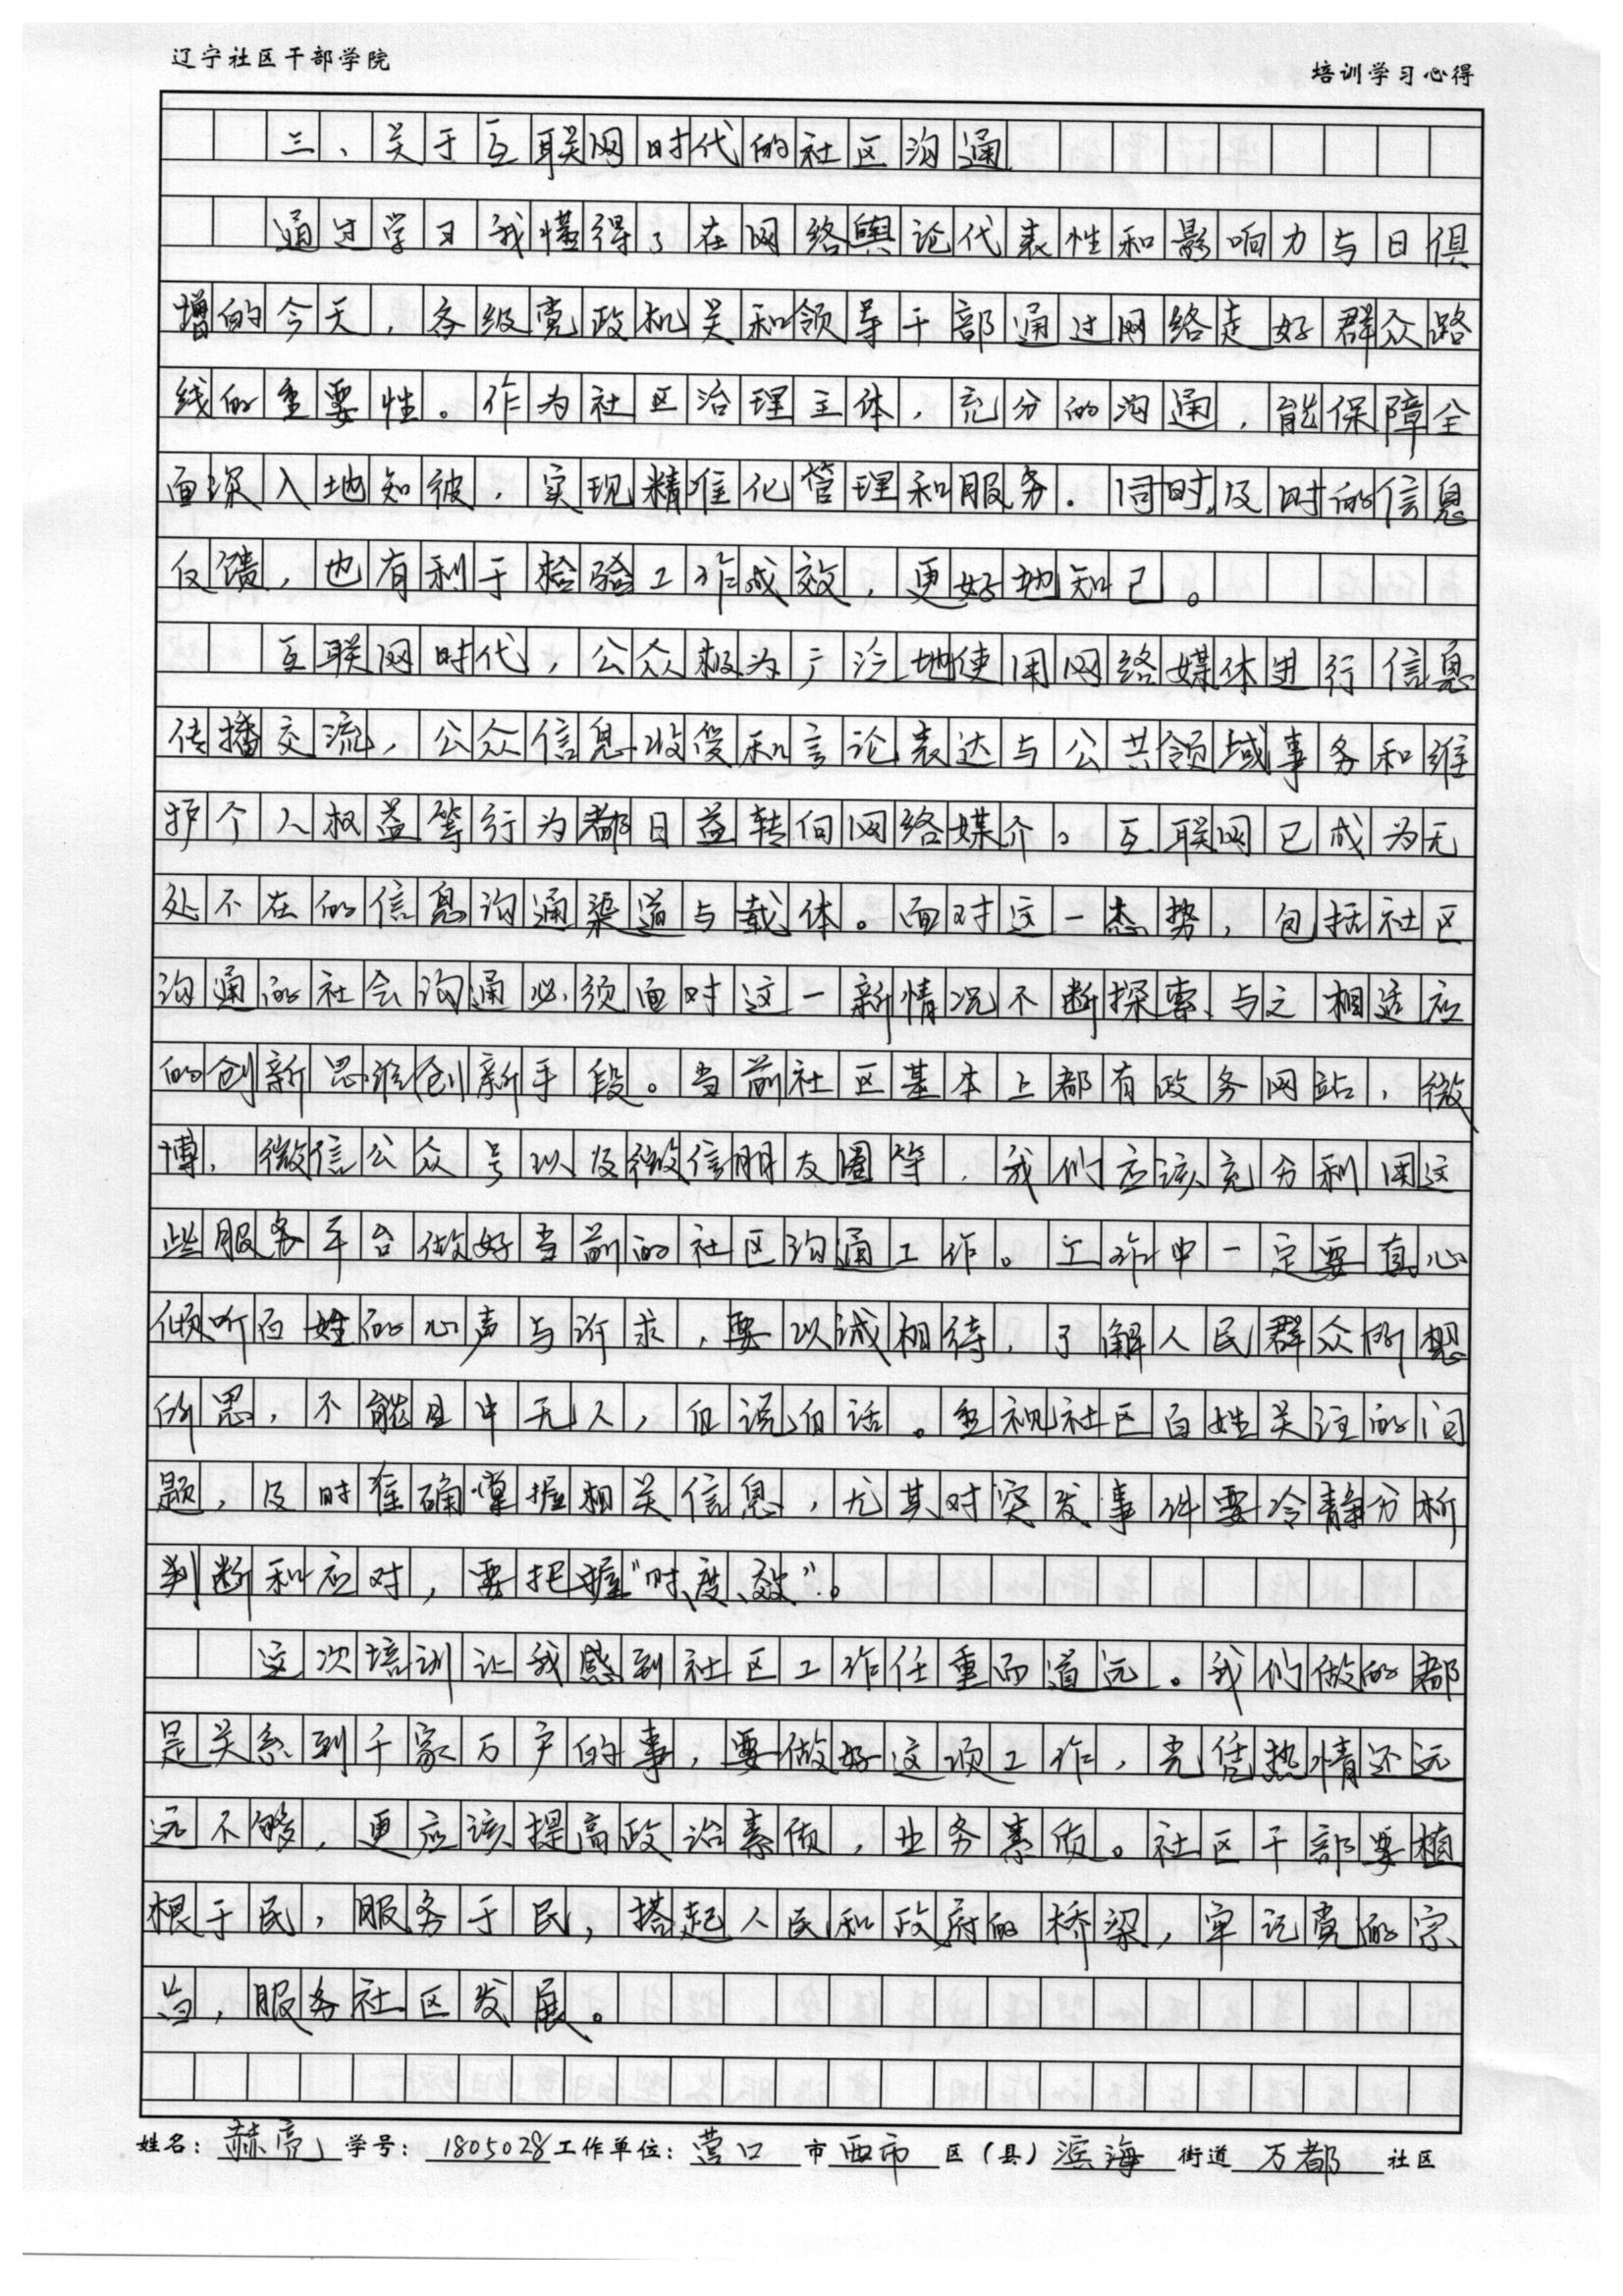 辽宁社区干部学院
培训学习心得
三、关于互联网时代的社区沟通
通过学习我懂得了在网络舆论代表性和影响力与日俱
增的今天，各级党政机关和领导干部通过网络走好群众路
线的重要性。作为社区治理主体，充分的沟通，能保障全
面深入地知彼，实现精准化管理和服务.同时,及时的信息
反馈，也有利于检验工作成效，更好地知己。
互联网时代，公众极为广泛地使用网络媒体进行信息
传播交流，公众信息收受和言论表达与公共领域事务和维
护个人权益等行为都日益转向网络媒介。互联网已成为无
处不在的信息沟通渠道与载体。面对这一态势，包括社区
沟通的社会沟通必须面对这一新情况不断探索、与之相适应
的创新思维创新手段。当前社区基本上都有政务网站，微
博，微信公众号以及微信朋友圈等，我们应该充分利用这
些服务平台做好当前的社区沟通工作。工作中一定要真心
倾听百姓的心声与诉求，要以诚相待，了解人民群众所想
所思，不能目中无人，自说自话。重视社区百姓关注的问
题，及时准确掌握相关信息，尤其对突发事件要冷静分析
判断和应对，要把握“时、度、效”。
这次培训让我感到社区工作任重而道远。我们做的都
是关系到千家万户的事，要做好这项工作，光凭热情还远
远不够，更应该提高政治素质，业务素质。社区干部要植
根于民，服务于民，搭起人民和政府的桥梁，牢记党的宗
旨，服务社区发展。
姓名：赫亮 学号：1805028 工作单位：营口 市 西市 区（县）滨海 街道 万都 社区